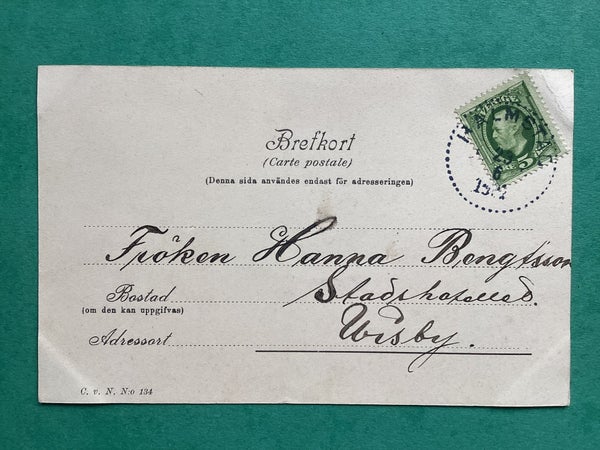 SVERIGE
5
HALMSTAD
Brefkort
(Carte postale)
(Denna sida användes endast för adresseringen)
Fröken Hanna Bengtsson
Bostad Stadshotellet.
(om den kan uppgifvas)
Wisby.
Adressort
C. v. N. N:o 134